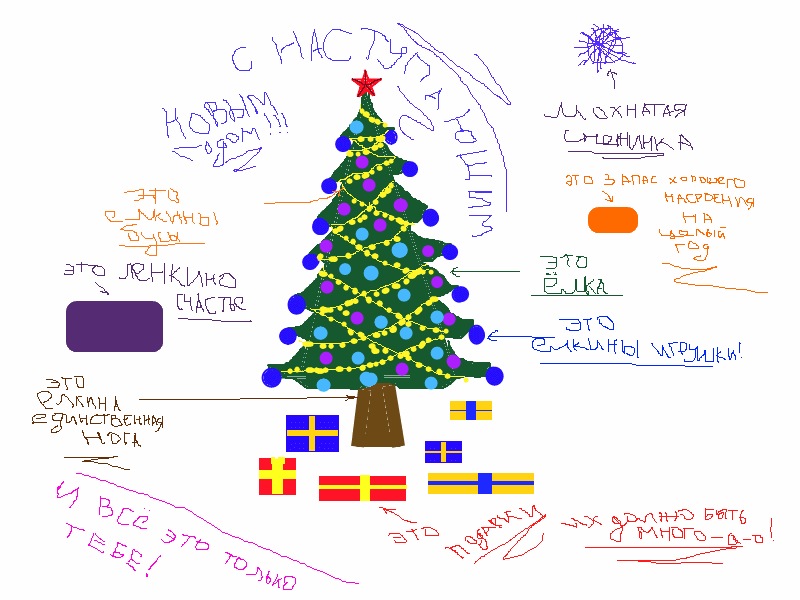 С НАСТУПАЮЩИМ
НОВЫМ
годом!!!
МОХНАТАЯ
СНЕЖИНКА
ЭТО ЗАПАС ХОРОШЕГО
НАСРОЕНИЯ
НА
ЦЕЛЫЙ
ГОД
ЭТО
ЁЛКИНЫ
БУСЫ
ЭТО ЛЕНКИНО
СЧАСТЬЕ
ЭТО
ЁЛКА
ЭТО
ЁЛКИНЫ ИГРУШКИ!
ЭТО
ЁЛКИНА
ЕДИНСТВЕННАЯ
НОГА
И ВСЁ ЭТО ТОЛЬКО
ТЕБЕ!
ЭТО ПОДАРКИ
ИХ ДОЛЖНО БЫТЬ
МНОГО-О-О!